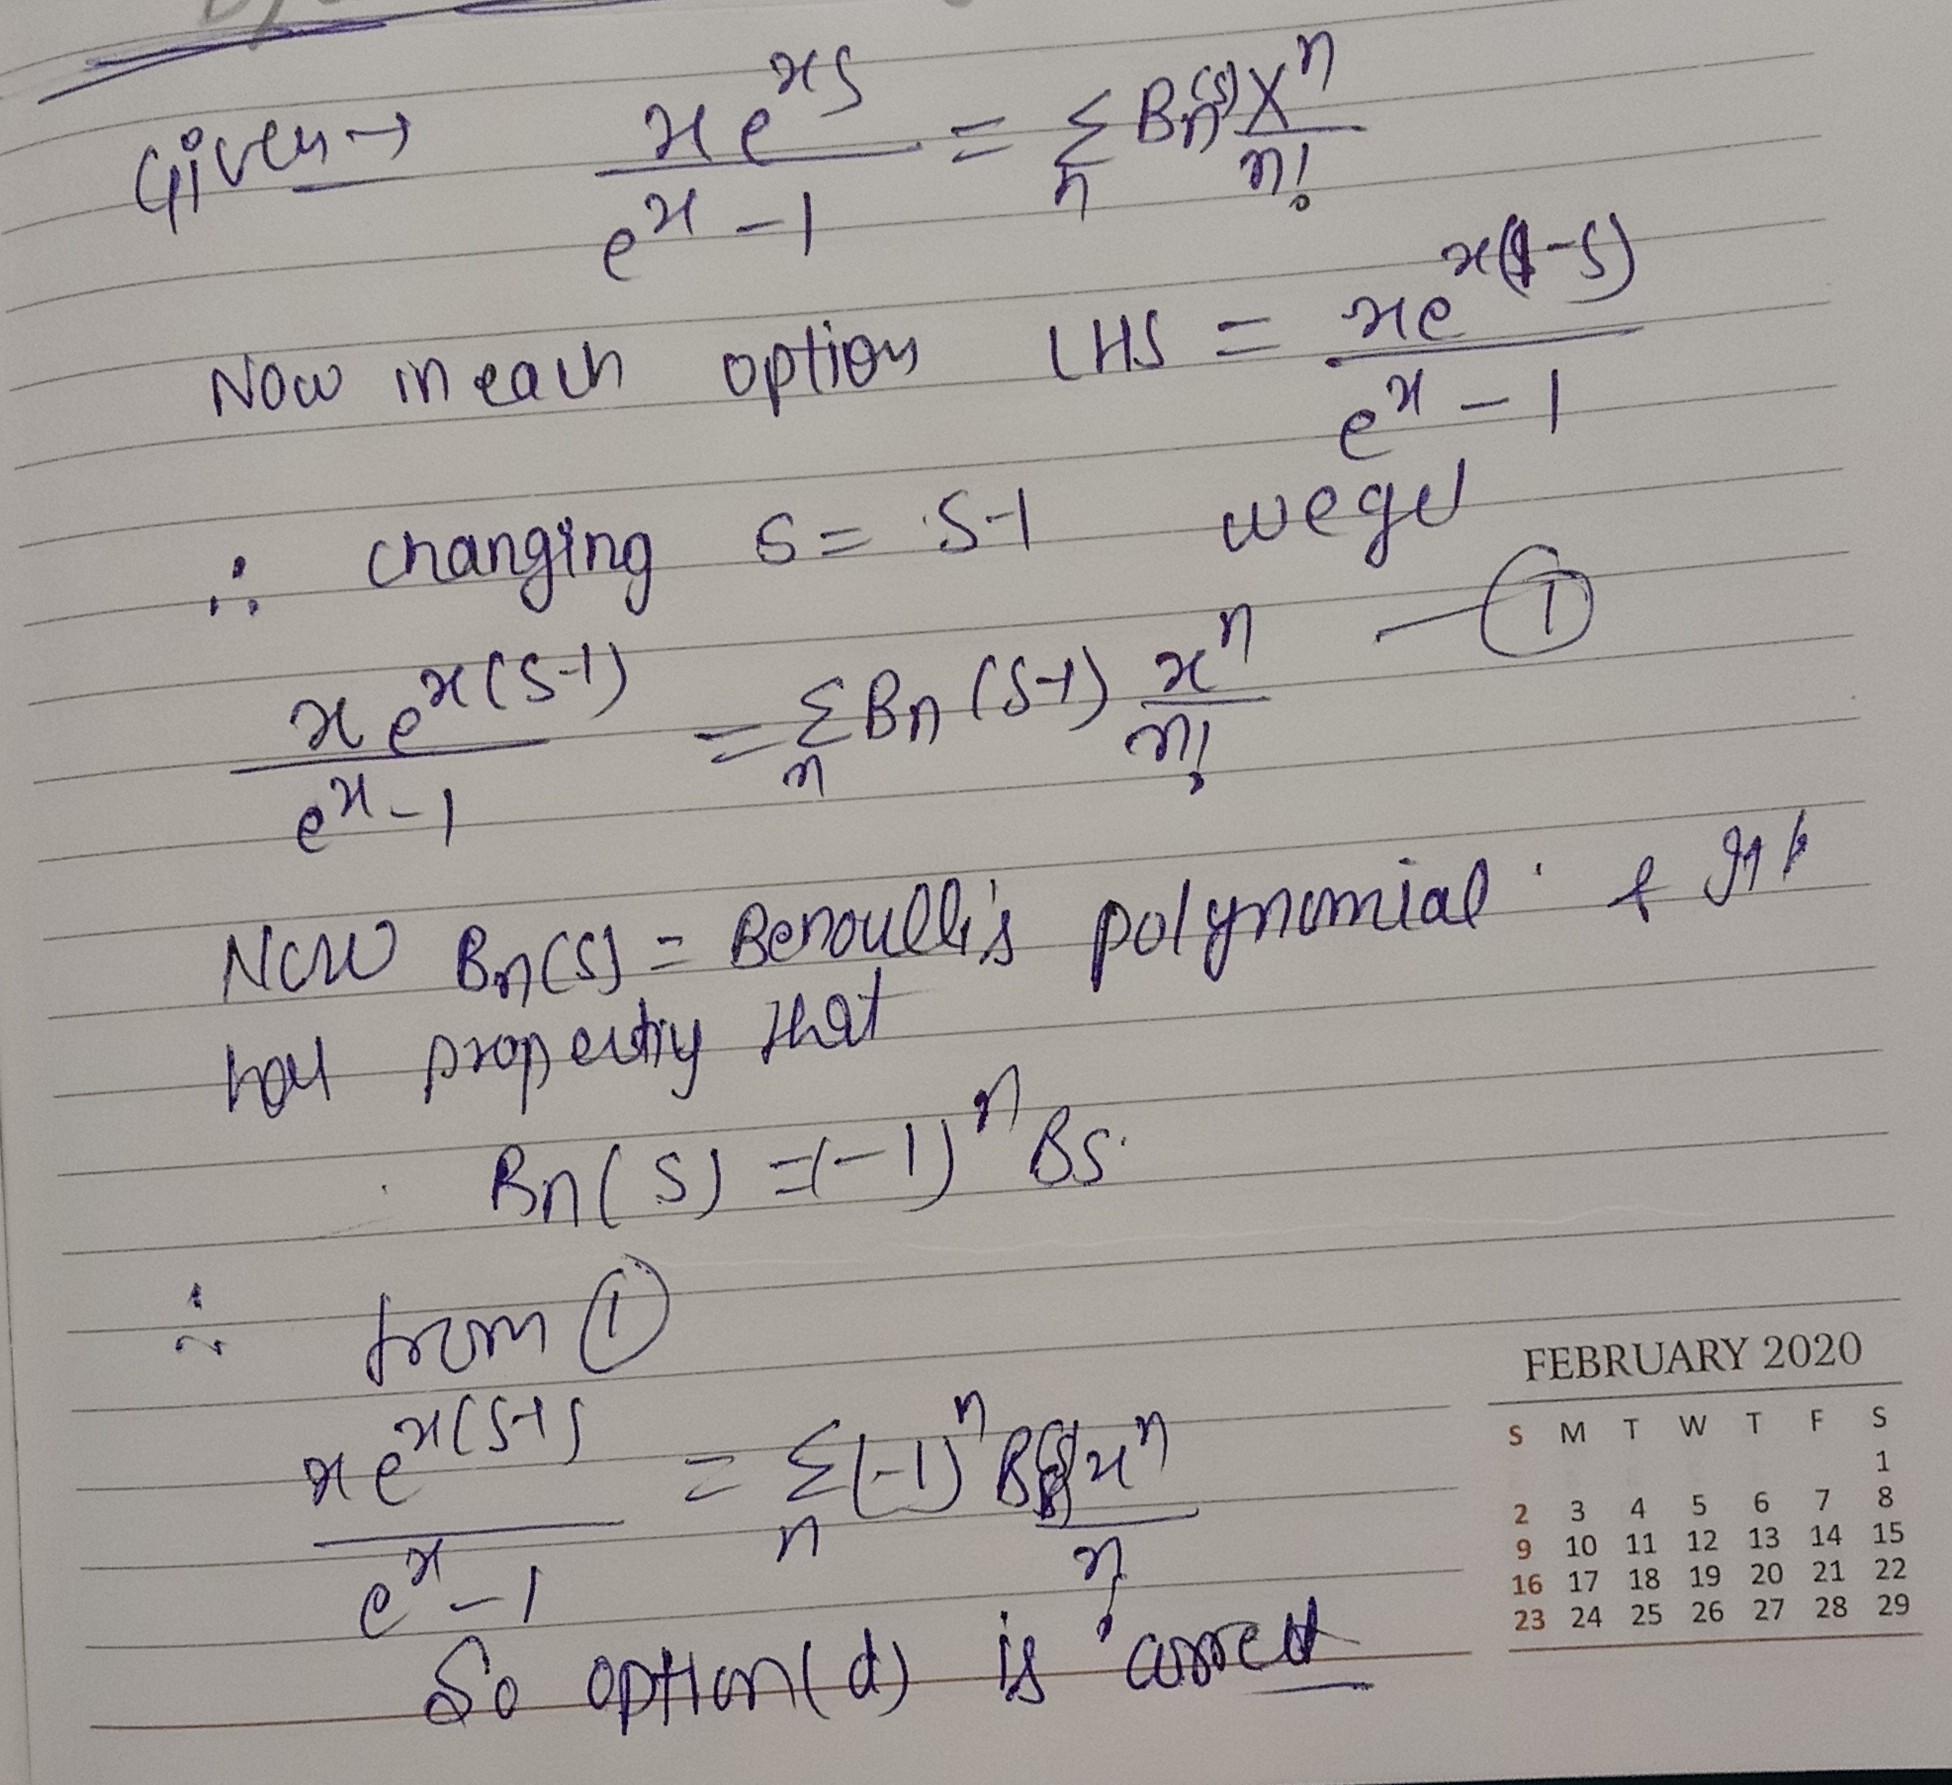 Given → xe^{xs} / e^x - 1 = Σ_n Bn(s) x^n / n!
Now in each option LHS = xe^{x(1-s)} / e^x - 1
∴ changing s = s-1 we get
xe^{x(s-1)} / e^x - 1 = Σ_n Bn (s-1) x^n / n! — ①
Now Bn(s) = Benoulli's polynomial &
has property that
Bn(s) = (-1)^n Bs.
∴ from ①
xe^{x(s-1)} / e^x - 1 = Σ_n (-1)^n B x^n / n!
So option (d) is correct
FEBRUARY 2020
S M T W T F S
1
2 3 4 5 6 7 8
9 10 11 12 13 14 15
16 17 18 19 20 21 22
23 24 25 26 27 28 29